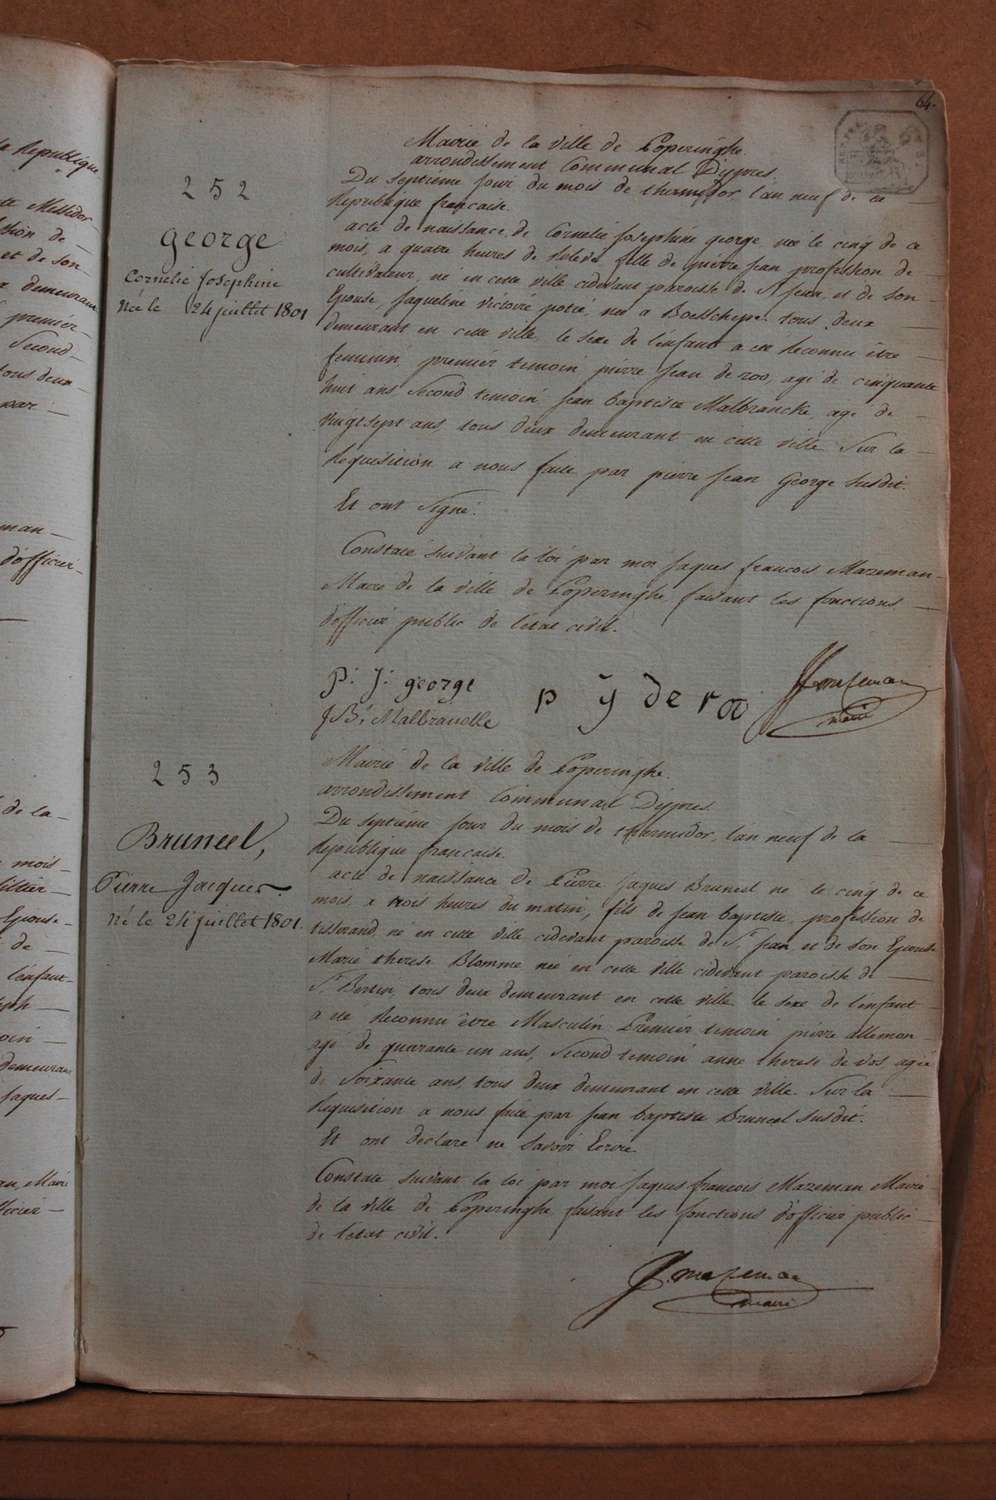 64.
252
george
Cornelie Josephine
Née le 24 juillet 1801
Mairie de la ville de Poperinghe
arrondissement Communal D'ypres.
Du septieme jour du mois de thermidor, l'an neuf de la
Republique francaise.
acte de naissance de Cornelie Josephine george, née le cinq de ce
mois, a quatre heures de fille de pierre jean profession de
cultivateur, né en cette ville cidevant paroisse de St jean, et de son
Epouse, jaqueline victoire potié, née a Boesschepe tous deux
demeurant en cette ville, le sexe de l'enfant a eté Reconnu être
feminin. premier temoin pierre jean de roo, agé de cinquante
huit ans, Second temoin, jean baptiste Malbrancke, agé de
vingtsept ans, tous deux demeurant en cette ville Sur la
Requisition a nous faite par pierre jean George susdit.
Et ont Signé.
Constaté suivant la loi par moi jaques francois Mazeman
Maire de la ville de Poperinghe, faisant les fonctions
d'officier public de l'etat civil.
P. J. george
p y de roo
J Bt Malbrancke
Jf mazeman
maire
253
Bruneel,
Pierre Jacques
Né le 24 juillet 1801
Mairie de la ville de Poperinghe.
arrondissement Communal D'ypres.
Du septieme jour du mois de thermidor, l'an neuf de la
Republique francaise.
acte de naissance de Pierre jaques Bruneel né le cinq de ce
mois, a trois heures du matin, fils de jean baptiste, profession de
tisserand, né en cette ville cidevant paroisse de St jean et de son Epouse
Marie therese Blomme née en cette ville cidevant paroisse de
St Bertin, tous deux demeurant en cette ville. le sexe de l'enfant
a eté Reconnu être Masculin Premier temoin pierre allemon
agé de quarante un ans, Second temoin anne therese de vos, agée
de Soixante ans, tous deux demeurant en cette ville. Sur la
Requisition a nous faite par jean baptiste Bruneel susdit.
Et ont declaré ne Savoir Ecrire.
Constaté suivant la loi par moi jaques francois Mazeman Maire
de la ville de Poperinghe, faisant les fonctions d'officier public
de l'etat civil.
Jf mazeman
maire